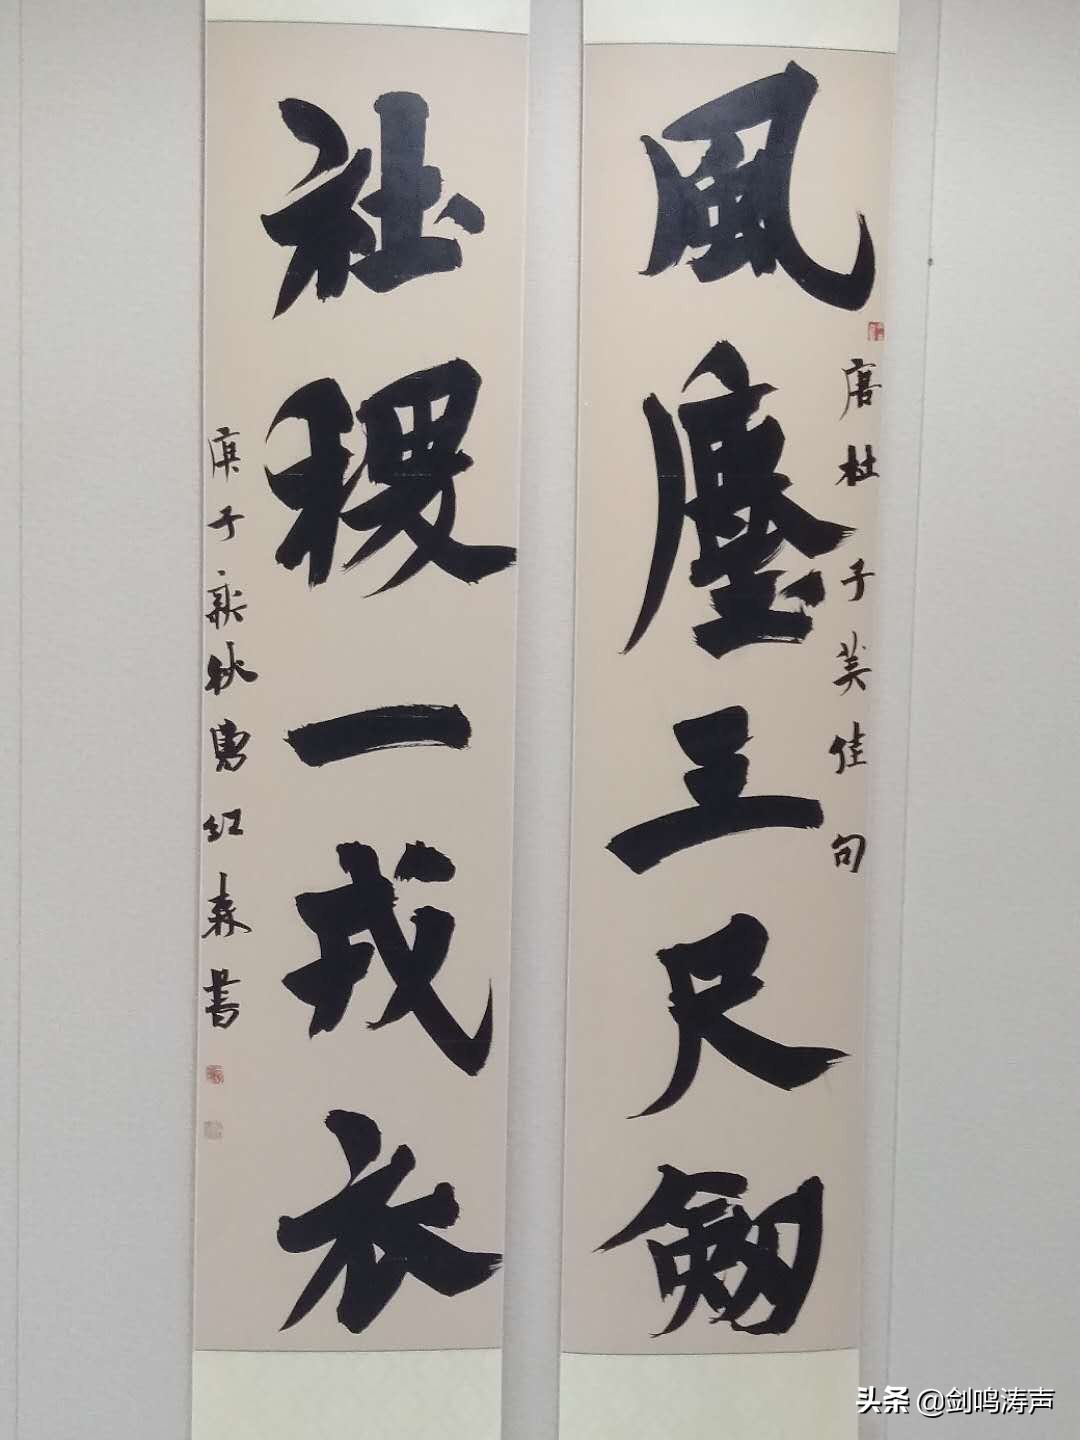 風塵三尺劔
唐杜子美佳句
社稷一戎衣
庚子新秋红森書
头条 @剑鸣涛声